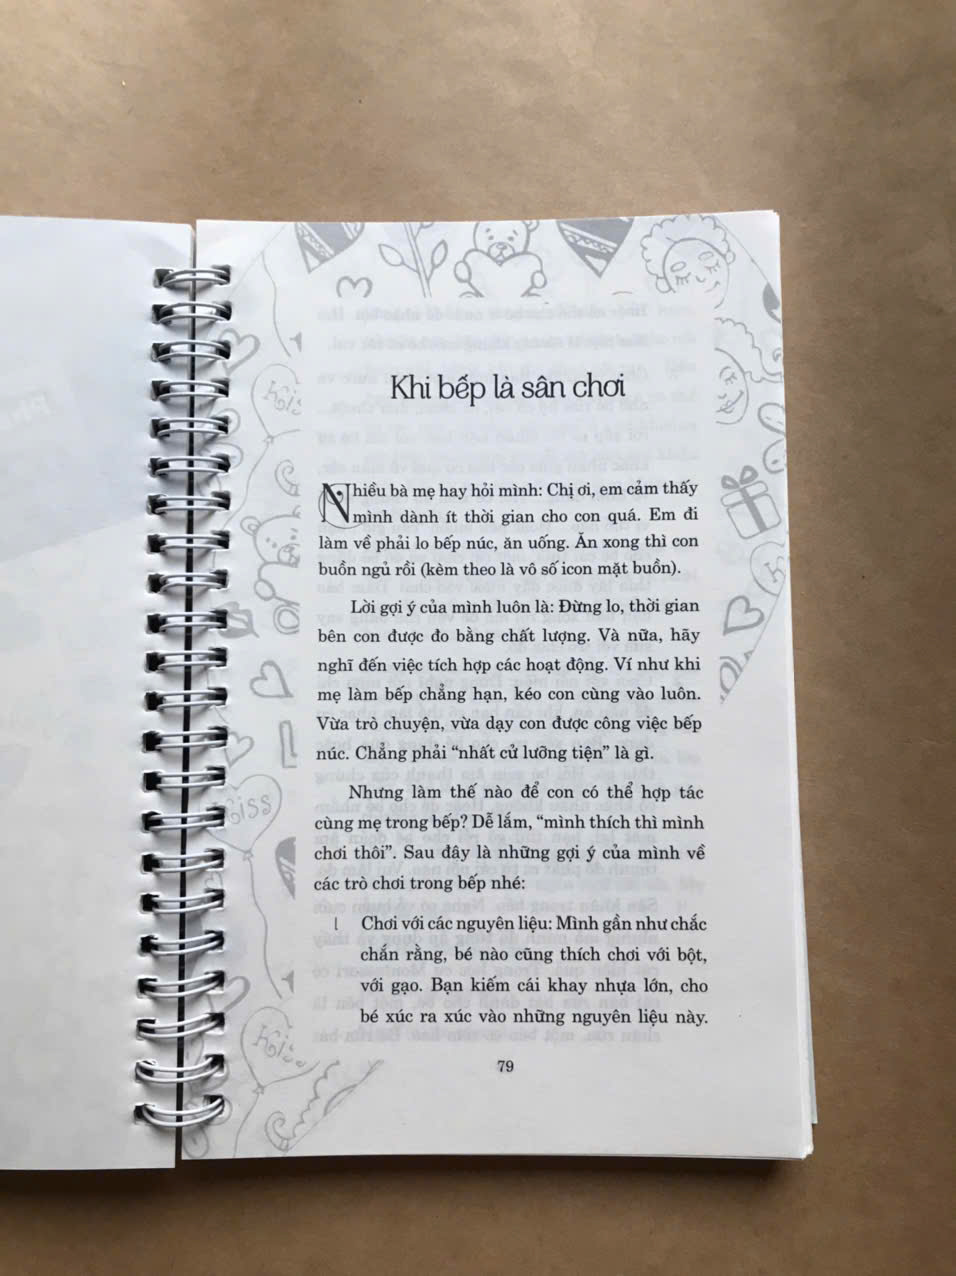 Khi bếp là sân chơi
Nhiều bà mẹ hay hỏi mình: Chị ơi, em cảm thấy
mình dành ít thời gian cho con quá. Em đi
làm về phải lo bếp núc, ăn uống. Ăn xong thì con
buồn ngủ rồi (kèm theo là vô số icon mặt buồn).
Lời gợi ý của mình luôn là: Đừng lo, thời gian
bên con được đo bằng chất lượng. Và nữa, hãy
nghĩ đến việc tích hợp các hoạt động. Ví như khi
mẹ làm bếp chẳng hạn, kéo con cùng vào luôn.
Vừa trò chuyện, vừa dạy con được công việc bếp
núc. Chẳng phải “nhất cử lưỡng tiện” là gì.
Nhưng làm thế nào để con có thể hợp tác
cùng mẹ trong bếp? Dễ lắm, “mình thích thì mình
chơi thôi”. Sau đây là những gợi ý của mình về
các trò chơi trong bếp nhé:
Chơi với các nguyên liệu: Mình gần như chắc
chắn rằng, bé nào cũng thích chơi với bột,
với gạo. Bạn kiếm cái khay nhựa lớn, cho
bé xúc ra xúc vào những nguyên liệu này.
79
Kiss